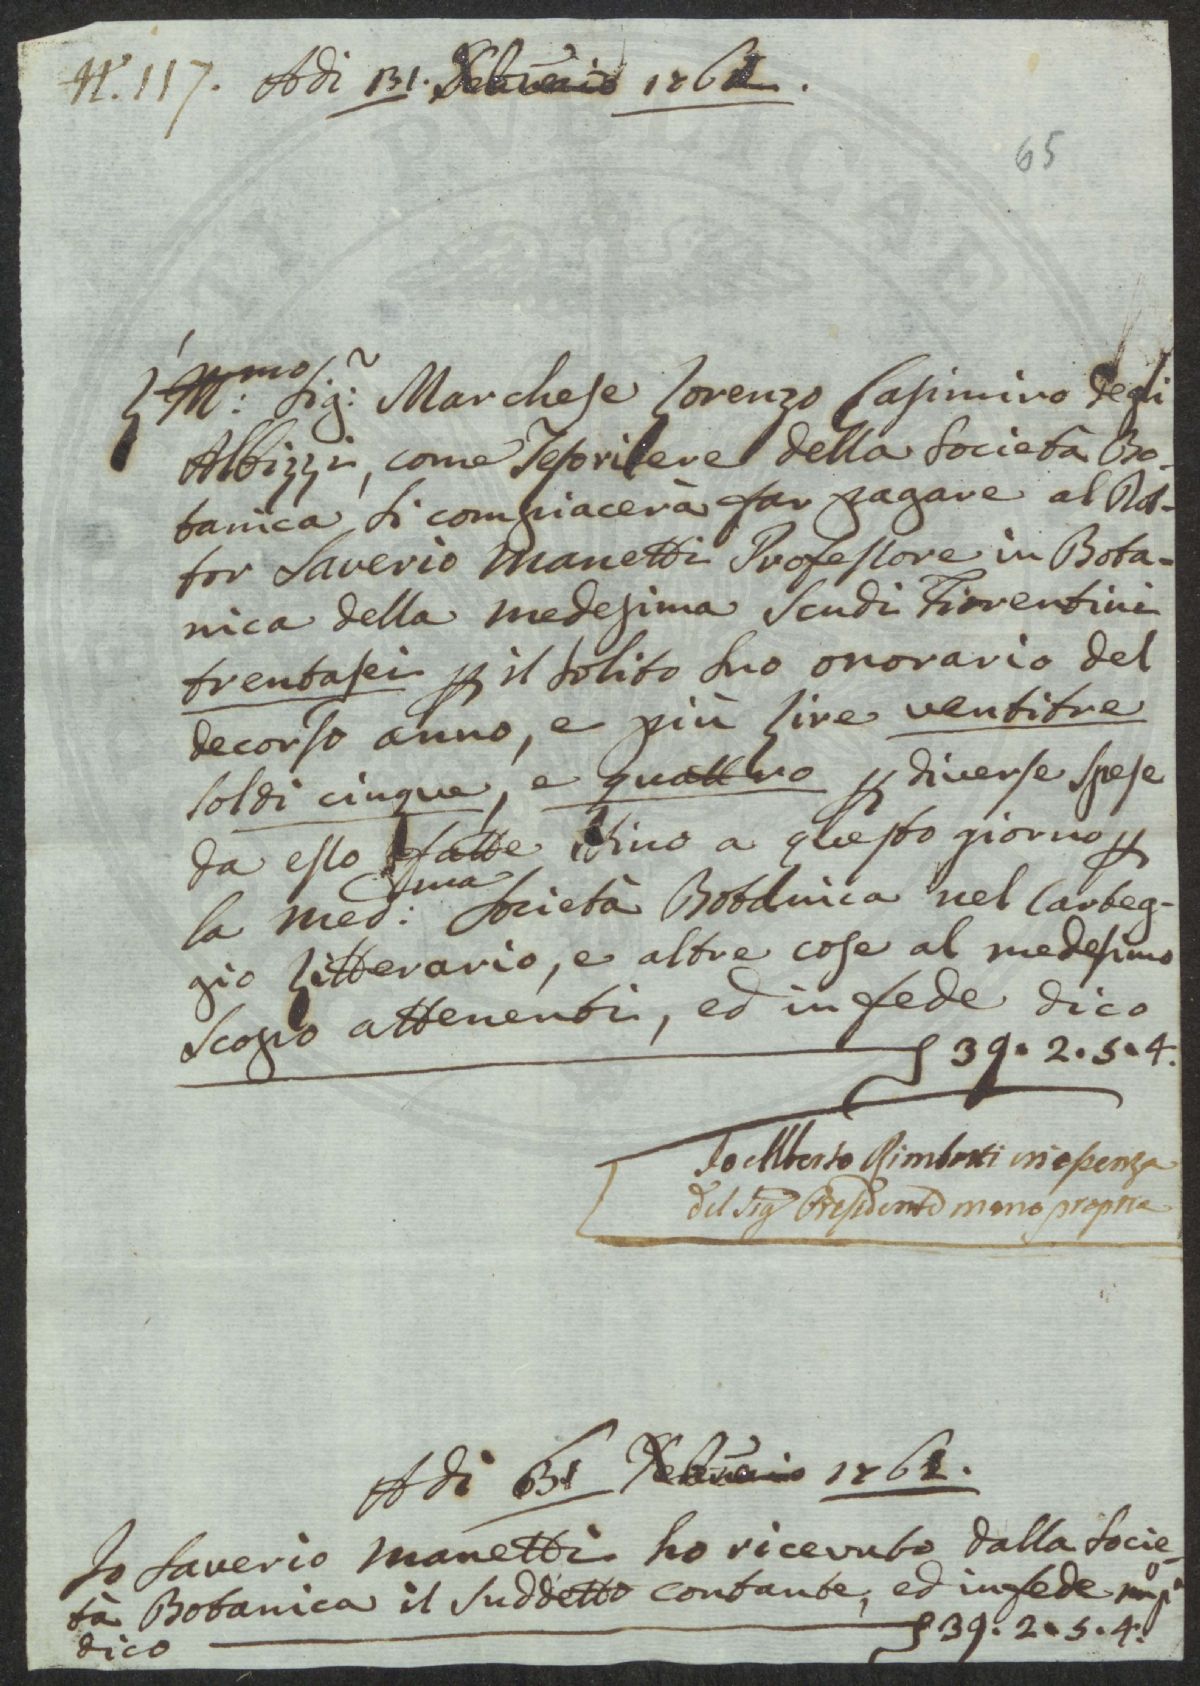 N.° 117. Adi 31. 1761.
65
Ill.mo Sig.r Marchese Lorenzo Casimiro degli
Albizzi, come Tesoriere della Società Bo-
tanica si compiacerà far pagare al Dot-
tor Saverio Manetti Professore in Bota-
nica della medesima Scudi Fiorentini
trentasei p il solito suo onorario del
decorso anno, e più lire ventitre
soldi cinque, e quattro p diverse spese
da esso fatte fino a questo giorno p
la med.ma Società Botanica nel Carteg-
gio Litterario, e altre cose al medesimo
Scopo attenenti, ed in fede dico
39. 2. 5. 4.
Io Alberto Rimbotti in
del Sig.r Presidente mano propria
Adi 31 1761.
Io Saverio Manetti ho ricevuto dalla Socie-
tà Botanica il suddetto contante, ed in fede m.o p.a
dico 39. 2. 5. 4.